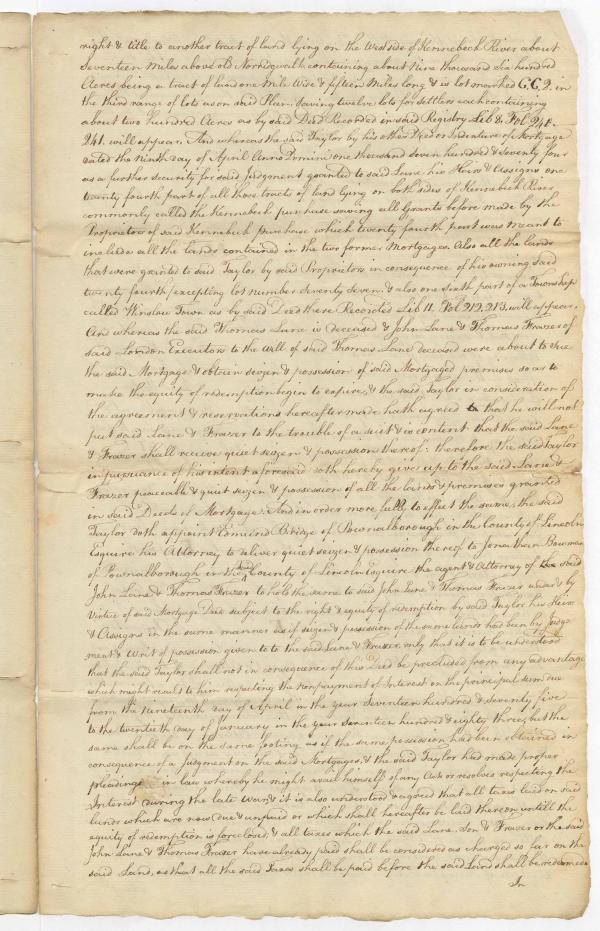 right & title to another tract of land lying on the West side of Kennebeck River about
Seventeen Miles above old Norridgwalk containing about Nine thousand Six hundred
Acres being a tract of land one Mile Wide & fifteen Miles long & is lot marked C.C.2. in
the third range of lots as on said Plan. Saving twelve lots for settlers each containing
about two hundred Acres as by said Deed Recorded in said Registry Lib 8, Fol 240.
241. will appear. And whereas the said Taylor by his other Deed or Indenture of Mortgage
dated the Ninth day of April Anno Domini one thousand Seven hundred & Seventy four
as a further security for said judgment granted to said Lane his Heirs & Assigns one
twenty fourth part of all those tracts of land lying on both sides of Kennebeck River
commonly called the Kennebeck purchase saving all Grants before made by the
Proprietors of said Kennebeck purchase which twenty fourth part was meant to
include all the lands contained in the two former Mortgages. Also all the lands
that were granted to said Taylor by said Proprietors in consequence of his owning said
twenty fourth excepting lot number Seventy Seven & also one sixth part of a Township
called Winslow Town as by said Deed there Recorded Lib 11. Fol 212.213. will appear.
And whereas the said Thomas Lane is deceased & John Lane & Thomas Frazer of
said London Executors to the Will of said Thomas Lane deceased were about to sue
the said Mortgage & obtain seizen & possession of said Mortgaged premises so as to
make the equity of redemption begin to expire, & the said Taylor in consideration of
the agreement & reservations hereafter made hath agreed that he will not
put said Lane & Frazer to the trouble of a suit & is content that the said Lane
& Frazer shall receive quiet seizen & possession thereof: therefore the said Taylor
in pursuance of his intent aforesaid doth hereby give up to the said Lane &
Frazer peaceable & quiet seizen & possession of all the lands & premises granted
in said Deeds of Mortgage. And in order more fully to effect the same, the said
Taylor doth appoint Edmund Bridge of Pownalborough in the County of Lincoln
Esquire his Attorney to deliver quiet seizen & possession thereof to Jonathan Bowman
of Pownalborough in the said County of Lincoln Esquire the agent & Attorney of the said
John Lane & Thomas Frazer to hold the same to said John Lane & Thomas Frazer under & by
Virtue of said Mortgage Deeds subject to the right & equity of redemption by said Taylor his Heirs
& Assigns in the same manner as if seizen & possession of the same lands had been by Judg-
ment & Writ of possession given to to the said Lane & Frazer, only that it is to be understood
that the said Taylor shall not in consequence of this Deed be precluded from any advantage
which might result to him respecting the nonpayment of Interest on the principal sum due
from the Nineteenth day of April in the year Seventeen hundred & seventy five
to the twentieth day of January in the year Seventeen hundred & eighty three, but the
same shall be on the same footing as if the same possession had been obtained in
consequence of a judgment on the said Mortgages, & the said Taylor had made proper
pleadings in law whereby he might avail himself of any Acts or resolves respecting the
Interest during the late War & it is also understood & agreed that all taxes laid on said
lands which are now due & unpaid or which shall hereafter be laid thereon untill the
equity of redemption is foreclosed, & all taxes which the said Lane Son & Frazer or the said
John Lane & Thomas Frazer have already paid shall be considered as charges so far on the
said Land, so that all the said Taxes shall be paid before the said Land shall be redeemed
In